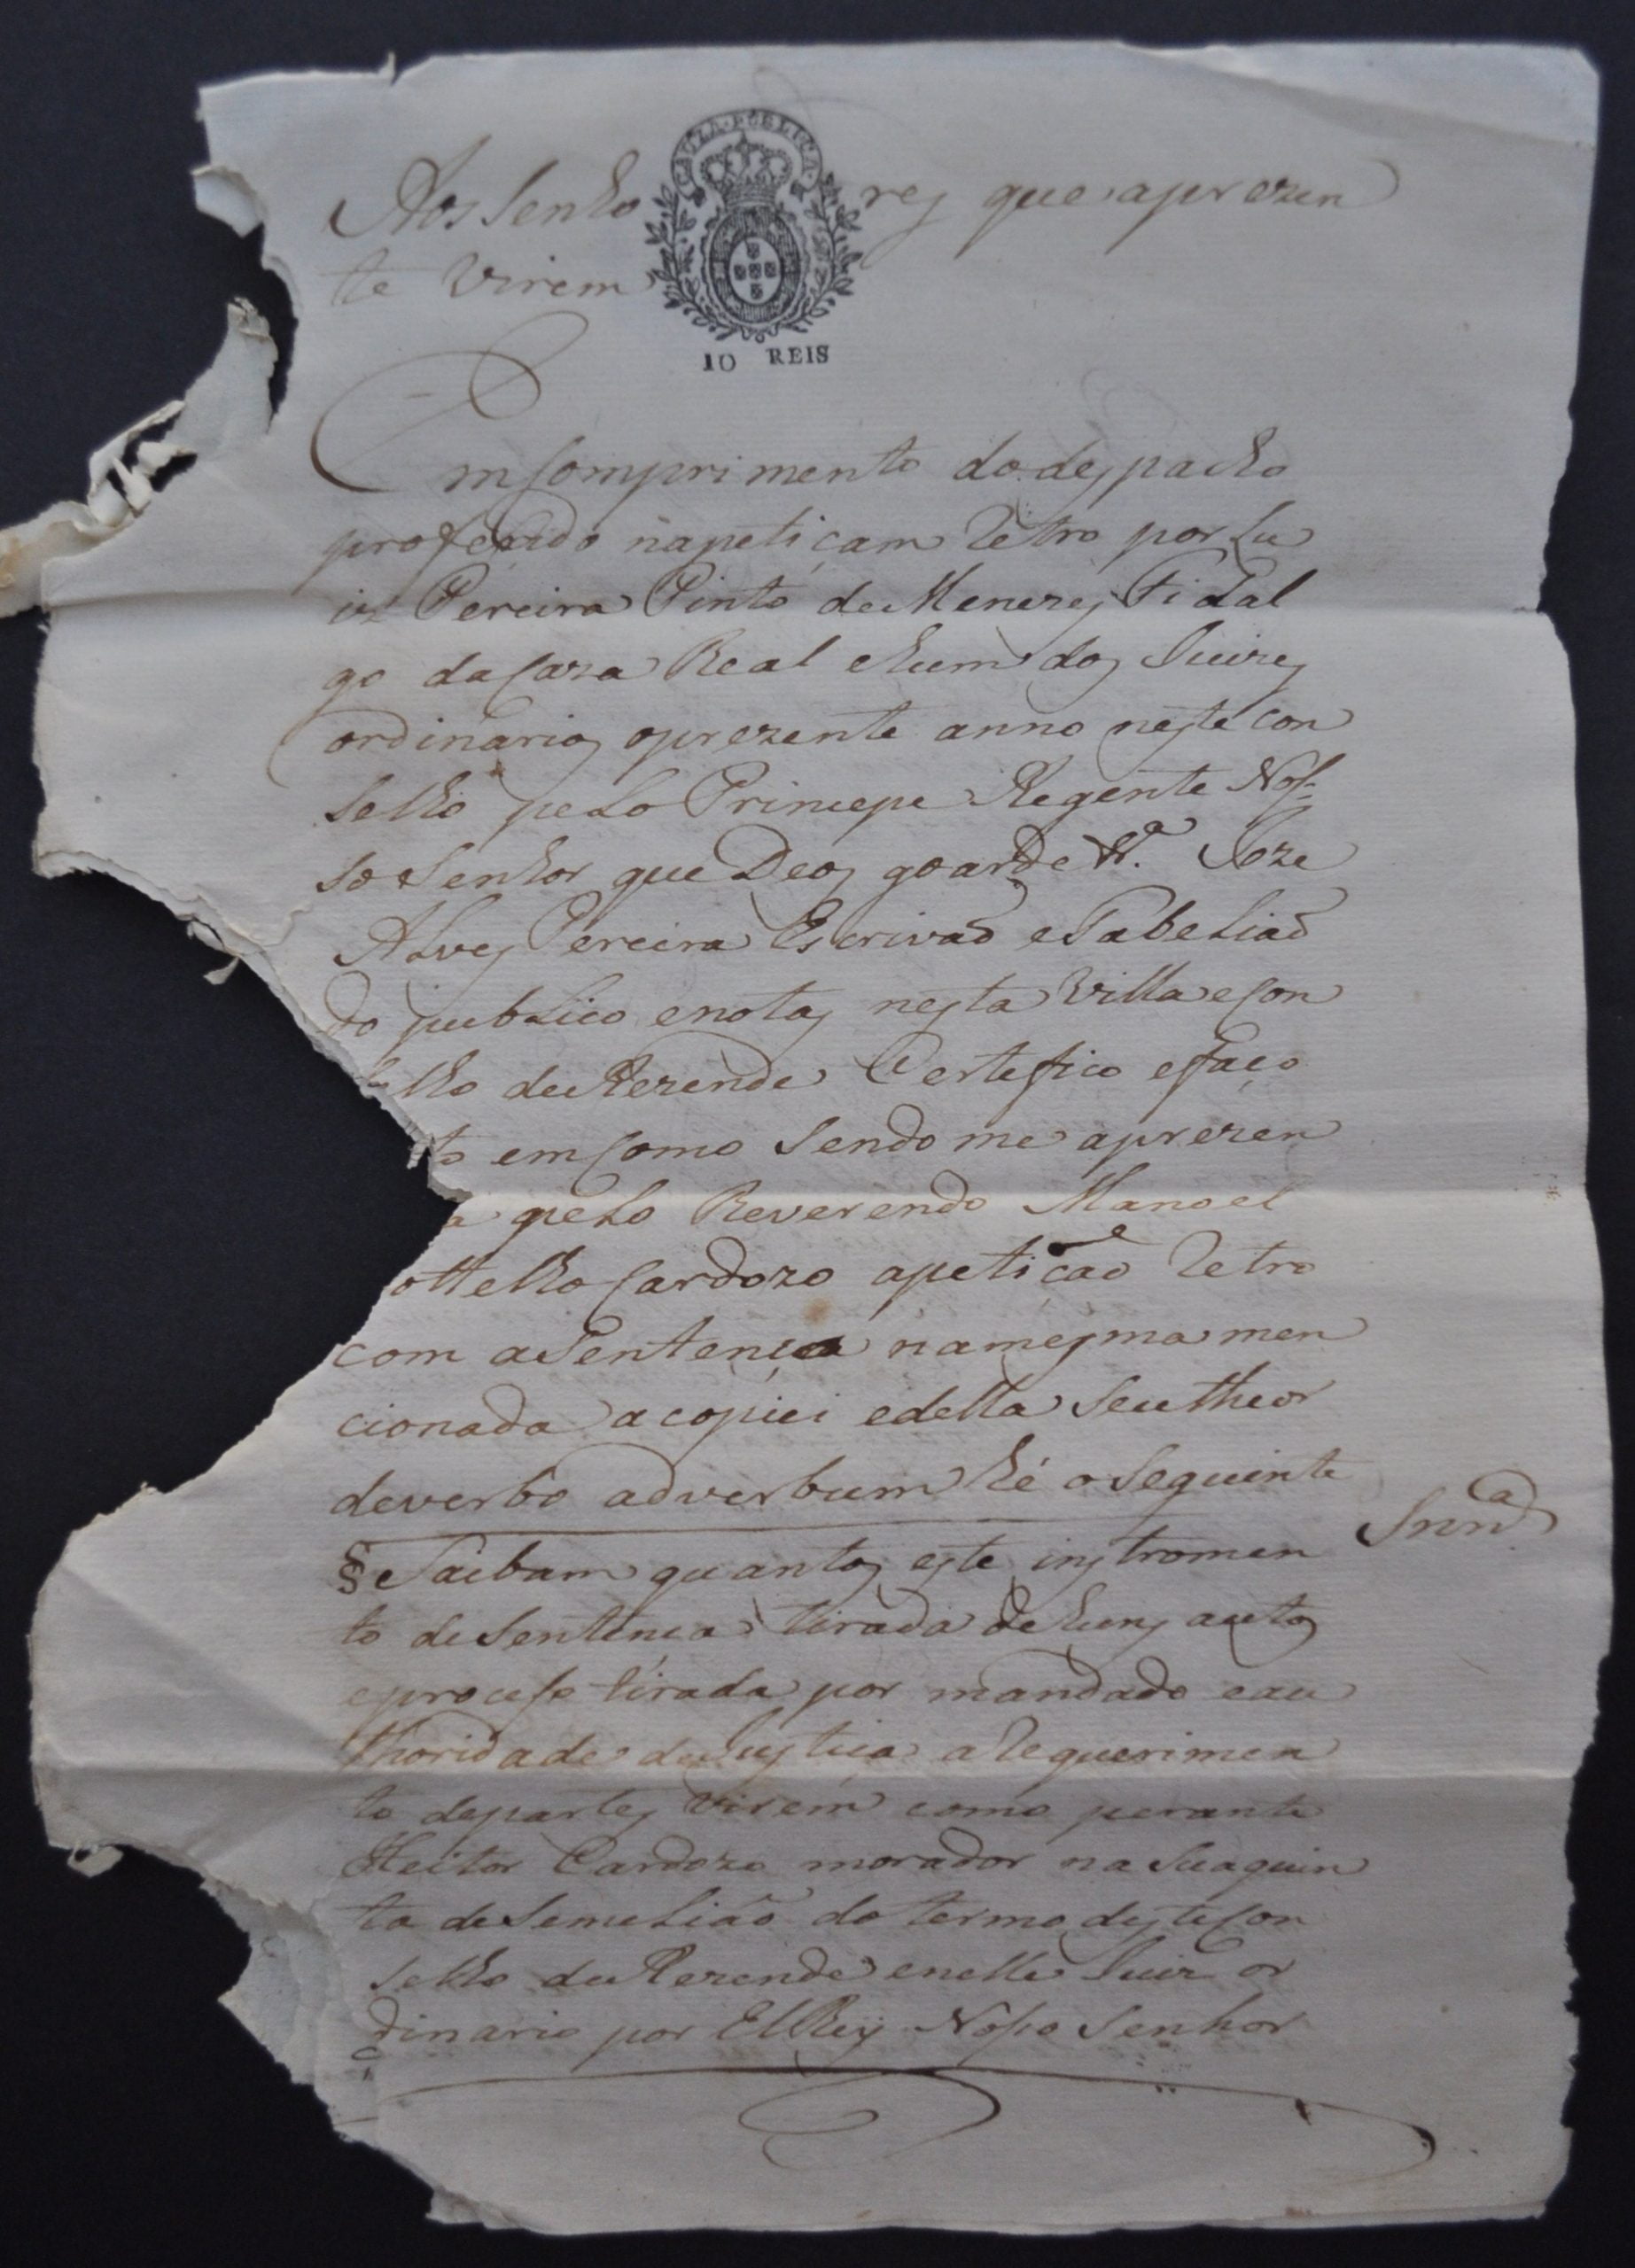 CAUZA PUBLICA
Aos Senho res que aprezen
te virem
10 REIS
Em Comprimento do despacho
proferido napeticam Retro por Lu
iz Pereira Pinto de Menezes Fidal
go da Caza Real ehum dos Juizes
ordinarios oprezente anno neste con
selho pelo Princepe Regente Nos-
so Senhor que Deos goarde Vª. Joze
Alves Pereira Escrivaõ eTabeliaõ
do publico enotas nesta Villa eCon
selho de Rezende Certefico efaço
to em Como Sendo me aprezen
a pelo Reverendo Manoel
ottelho Cardozo apeticaõ Retro
com aSentença namesma men
cionada acopiei edella Seu theor
deverbo adverbum hé oseguinte
§ Saibam quantos este instromen Snnª
to de Sentença tirada dehuns autos
eproceso tirada por mandado eau
thoridade de Justiça aRequerimen
to departes virem como perante
Heitor Cardozo morador na Suaquin
ta de Semelião do termo desteCon
selho de Rezende enelle Juiz or
dinario por ElRey Nosso Senhor